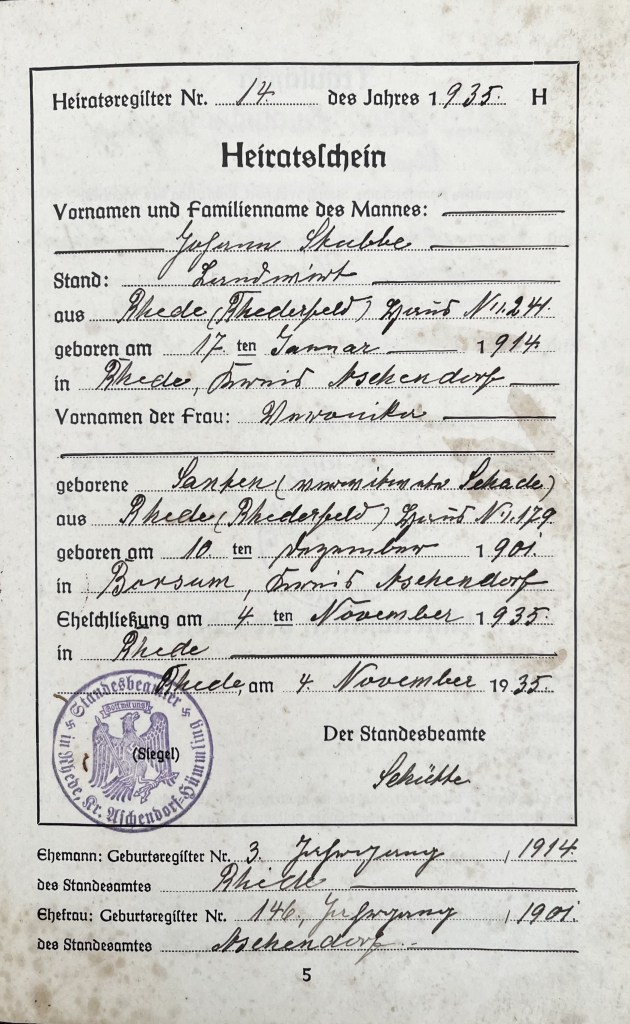 Heiratsregister Nr. 14. des Jahres 1935. H
Heiratsschein
Vornamen und Familienname des Mannes:
Johann Stubbe
Stand: Landwirt
aus Rhede (Rhederfeld) Haus Nr. 241.
geboren am 17 ten Januar 1914
in Rhede, Kreis Aschendorf
Vornamen der Frau: Veronika
geborene Santen (verwitwete Schade)
aus Rhede (Rhederfeld) Haus Nr. 179
geboren am 10. ten Dezember 1901.
in Borsum, Kreis Aschendorf
Eheschließung am 4 ten November 1935.
in Rhede
Rhede, am 4. November 1935.
Der Standesbeamte
(Siegel)
Schütte
Standesbeamter
in Rhede, Kr. Aschendorf-Hümmling
Gott mit uns
Ehemann: Geburtsregister Nr. 3. Jahrgang, 1914.
des Standesamtes Rhede
Ehefrau: Geburtsregister Nr. 146, Jahrgang, 1901.
des Standesamtes Aschendorf.
5